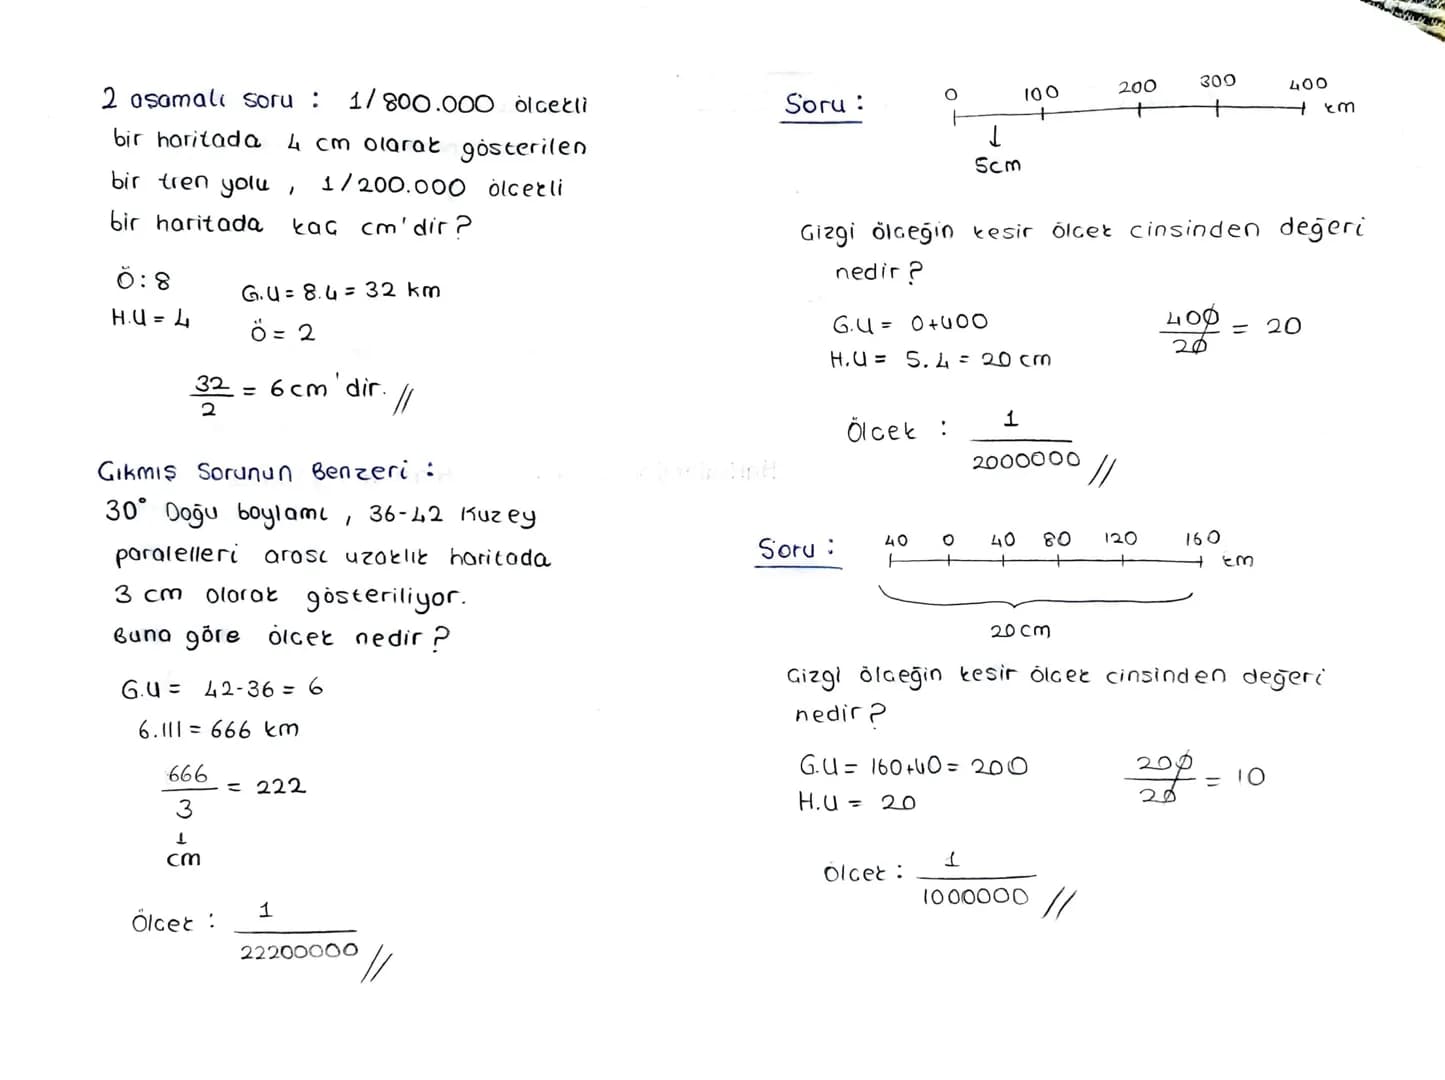 2 asamalı soru : 1/800.000 ölcekli
bir haritada 4 cm olarak gösterilen
bir tren yolu , 1/200.000 ölcekli
bir haritada kaç cm'dir?
Ö:8
H.U = 4
G.U = 8.4 = 32 km
Ö = 2
32/2 = 6cm'dir.//
Çıkmış Sorunun Benzeri :
30° Doğu boylamı , 36-42 Kuzey
paralelleri arası uzaklık haritada
3 cm olarak gösteriliyor.
Buna göre ölçek nedir?
G.U = 42-36 = 6
6.111 = 666 km
666/3 = 222
↓
cm
Ölcek : 1/22200000 //
Soru :
0 100 200 300 400
km
↓
5cm
Çizgi ölçeğin kesir ölcek cinsinden değeri
nedir?
G.U = 0+400
H.U = 5.4 = 20 cm
400/20 = 20
Ölcek : 1/2000000 //
Soru :
40 0 40 80 120 160
km
20cm
Çizgi ölçeğin kesir ölcek cinsinden değeri
nedir?
G.U = 160+40 = 200
H.U = 20
200/20 = 10
Olcek : 1/1000000 //